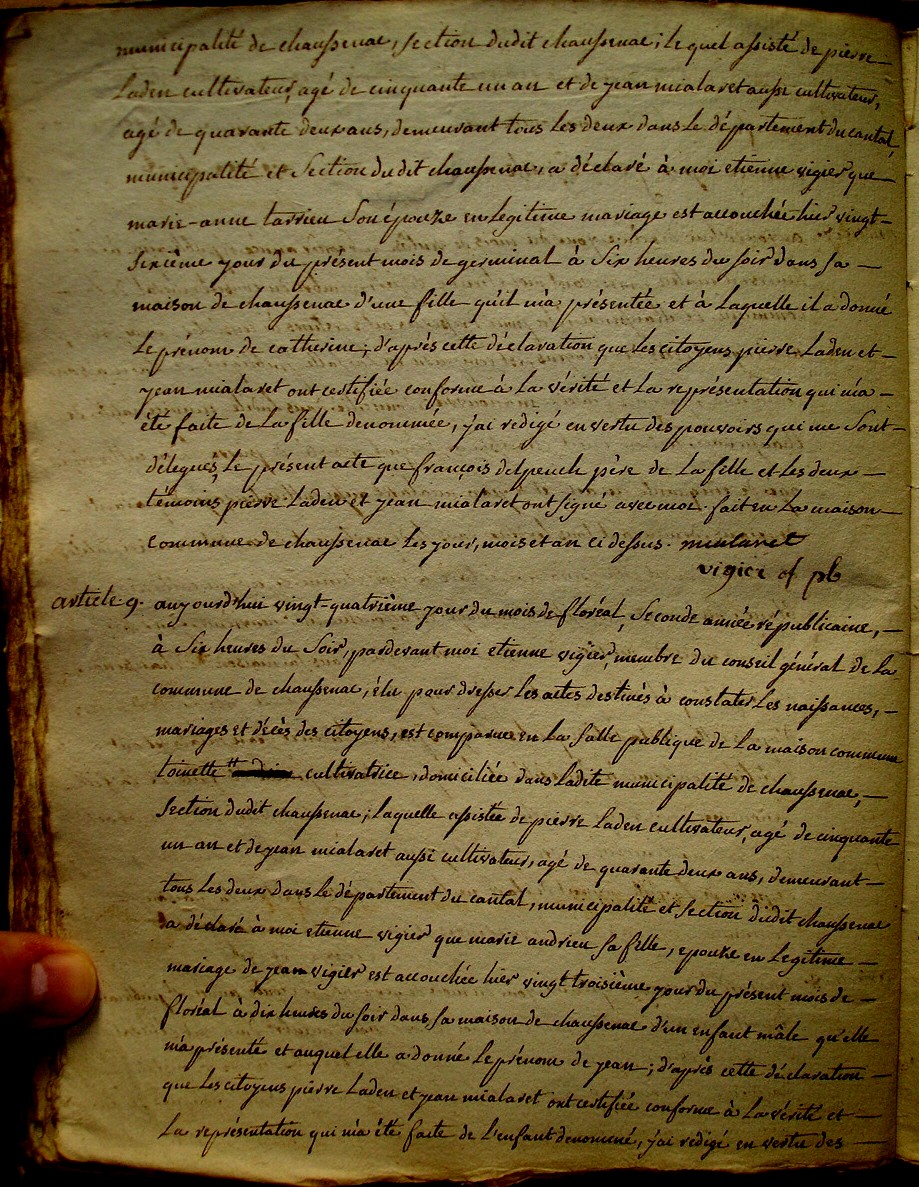 municipalité de chaussenac, section dudit chaussenac; le quel assisté de pierre
Laden cultivateur, agé de cinquante un an et de jean mialaret aussi cultivateur,
agé de quarante deux ans, demeurant tous les deux dans le département du cantal,
municipalité et Section dudit chaussenac, a déclaré à moi etienne vigier que
marie-anne tarrieu Son épouze en legitime mariage est accouchée hier vingt-
Sixième jour du présent mois de germinal à Six heures du soir dans sa
maison de chaussenac d'une fille qu'il m'a présentée et à Laquelle il a donné
Le prénom de catherine; d'après cette déclaration que les citoyens pierre Laden et
jean mialaret ont certifiée conforme à la vérité et la représentation qui m'a
été faite de La fille denommée, j'ai redigé en vertu des pouvoirs qui me Sont
délegués, Le présent acte que françois delpeuch père de La fille et Les deux
témoins pierre Laden et jean mialaret ont signé avec moi. fait en La maison
commune de chaussenac les jour, mois et an ci dessus. mialaret
vigier of pb
article 9. aujourd'hui vingt-quatrième jour du mois de floréal, Seconde année républicaine,
à Six heures du Soir, pardevant moi etienne vigier, membre du conseil général de la
commune de chaussenac, élu pour dresser Les actes destinés à constater Les naissances,
mariages et décès des citoyens, est comparue en La Salle publique de La maison commune
toinette cultivatrice, domiciliée dans Ladite municipalité de chaussenac,
Section dudit chaussenac; Laquelle assistée de pierre Laden cultivateur, agé de cinquante
un an et de jean mialaret aussi cultivateur, agé de quarante deux ans, demeurant
tous Les deux dans Le département du cantal, municipalité et Section dudit chaussenac
a déclaré à moi etienne vigier que marie andrieu sa fille, epouze en Legitime
mariage de jean vigier est accouchée hier vingt troisième jour du présent mois de
floréal à dix heures du soir dans sa maison de chaussenac d'un enfant mâle qu'elle
m'a présenté et auquel elle a donné Le prénom de jean; d'après cette déclaration
que Les citoyens pierre Laden et jean mialaret ont certifiée conforme à La vérité et
La représentation qui m'a été faite de L'enfant denommé, j'ai redigé en vertu des